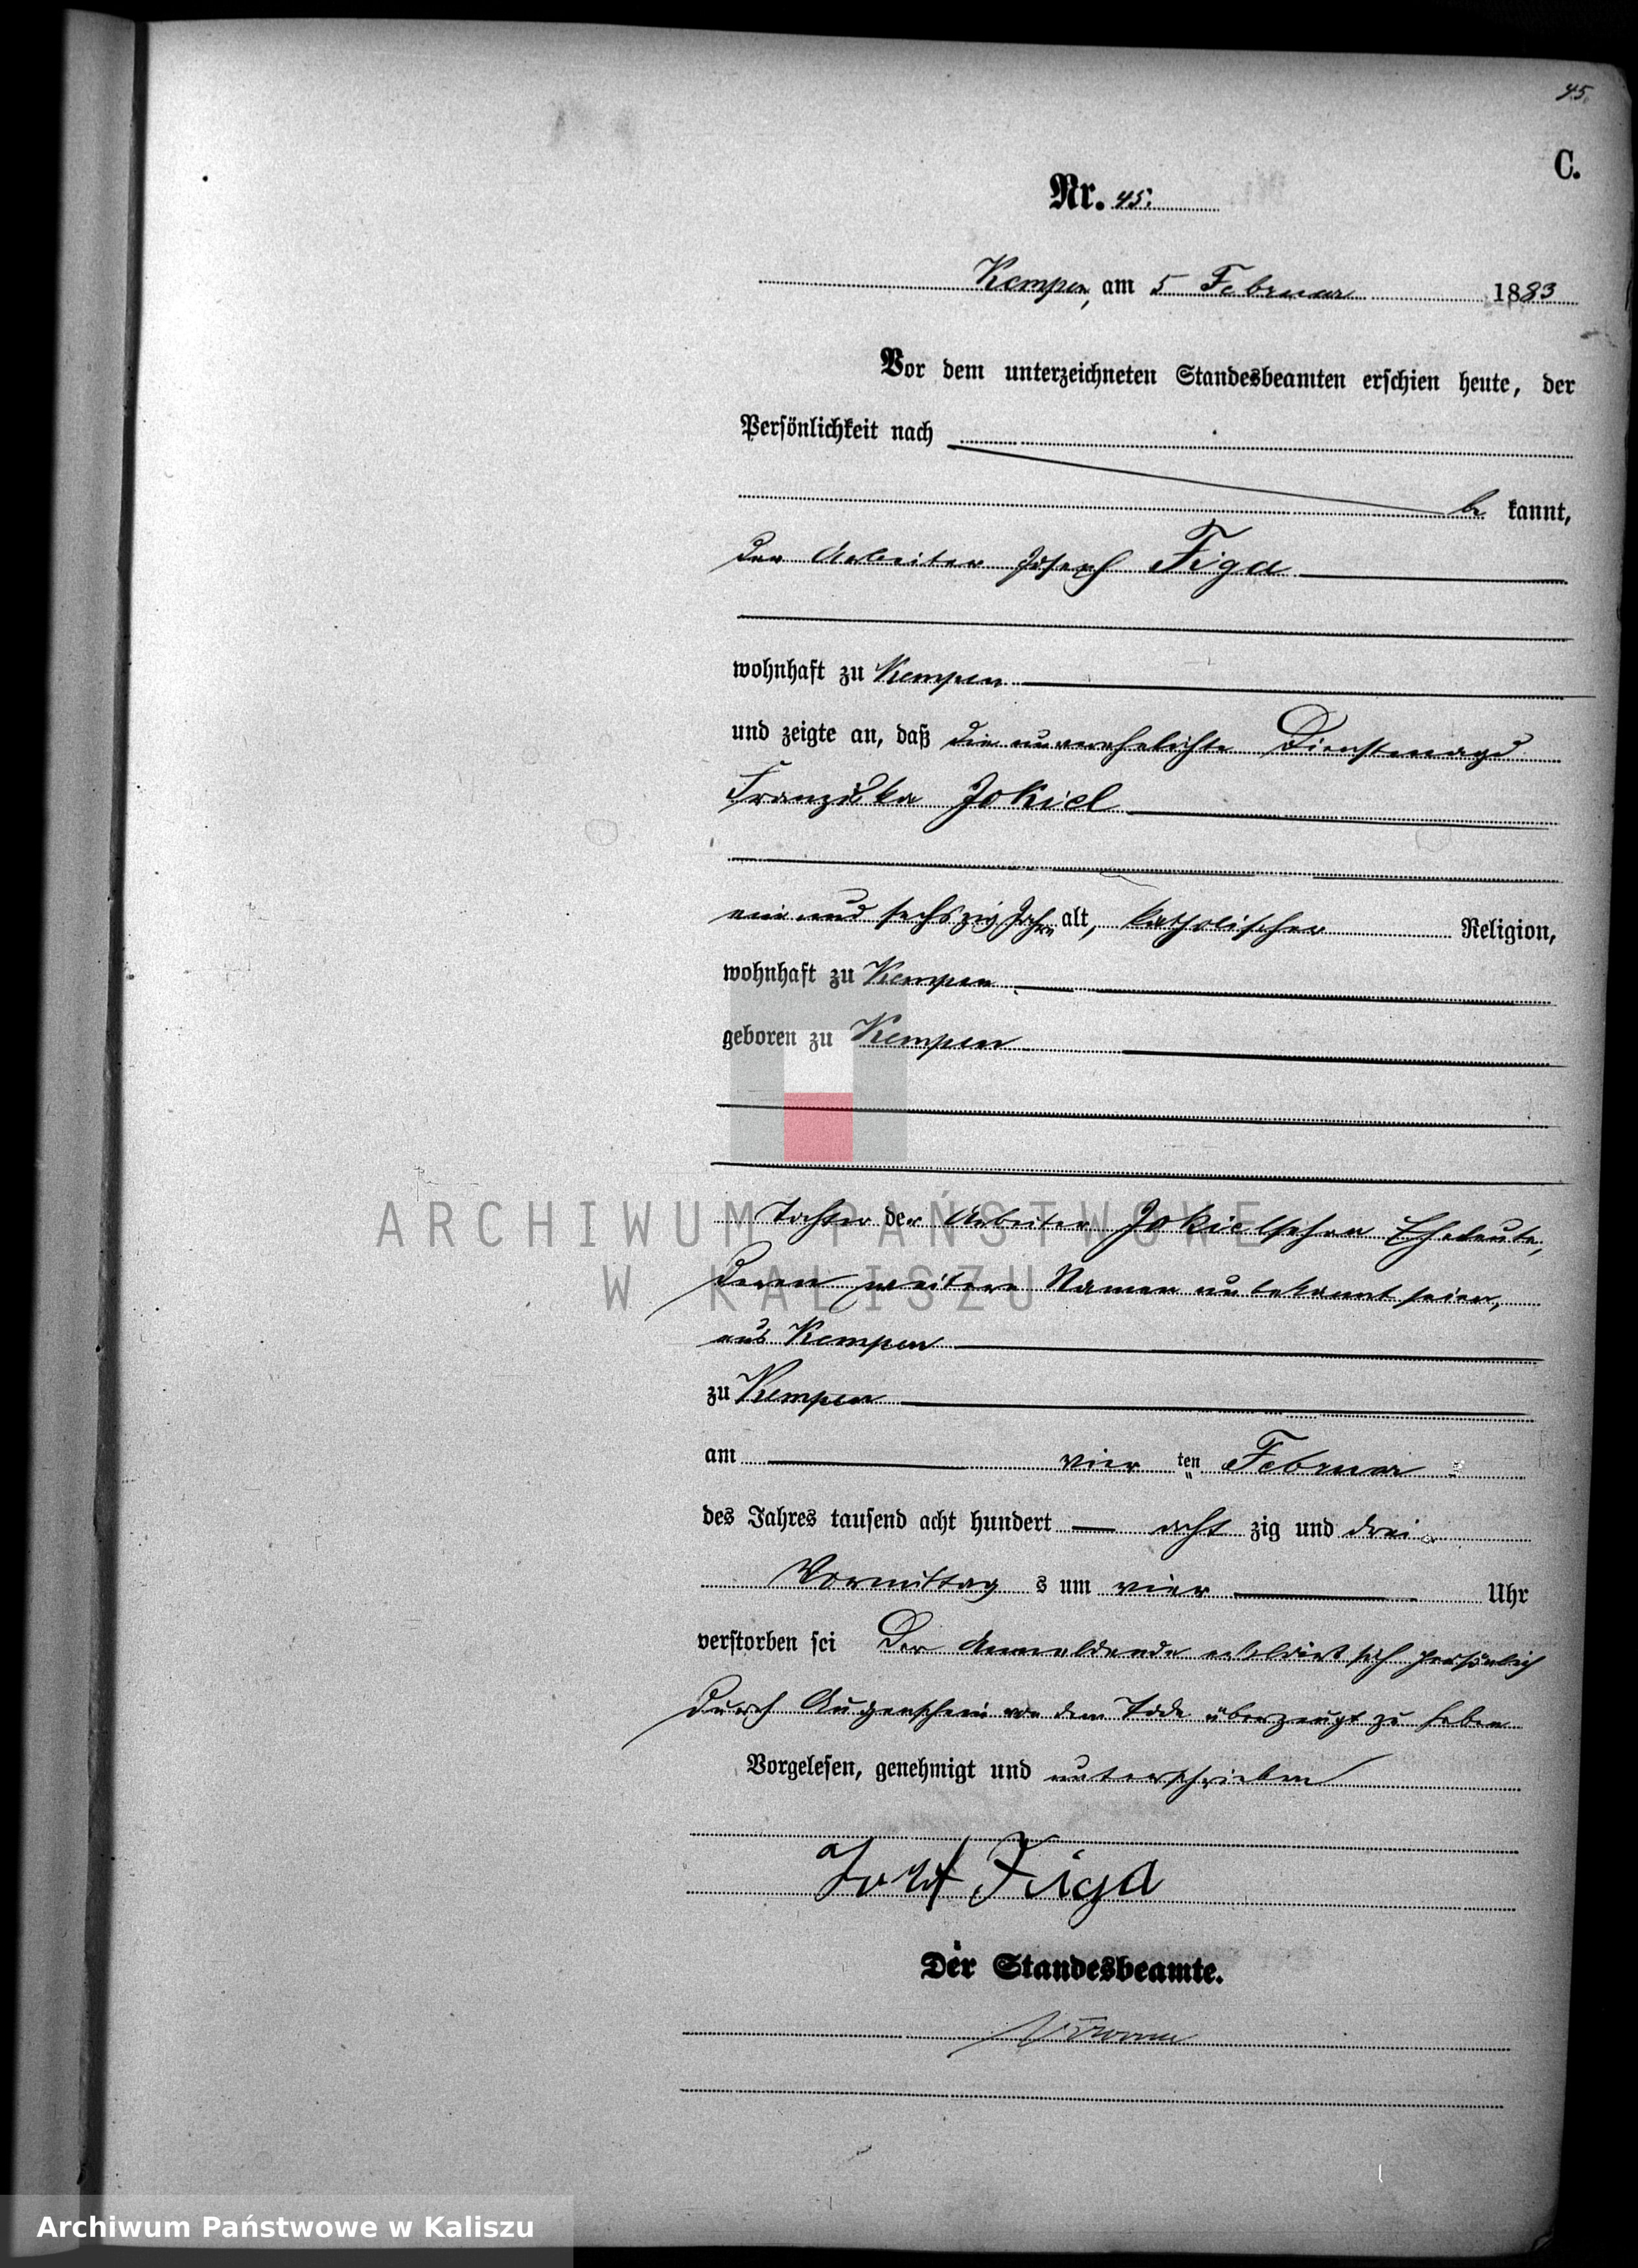 45.
C.
Nr. 45.
Kempen, am 5 Februar 1883
Vor dem unterzeichneten Standesbeamten erschien heute, der
Persönlichkeit nach
be kannt,
der Arbeiter Joseph Figa
wohnhaft zu Kempen
und zeigte an, daß die unverehelichte Dienstmagd
Franziska Jokiel
ein und sechszig Jahre alt, katholischer Religion,
wohnhaft zu Kempen
geboren zu Kempen
Tochter der Arbeiter Jokielschen Eheleute,
deren weitere Namen unbekannt seien,
aus Kempen
zu Kempen
am vier ten Februar
des Jahres tausend acht hundert acht zig und drei
Vormittag s um vier Uhr
verstorben sei Der Anmeldende erklärt sich persönlich
durch Augenschein von dem Tode überzeugt zu haben
Vorgelesen, genehmigt und unterschrieben
Figa
Der Standesbeamte.
ARCHIWUM PAŃSTWOWE
W KALISZU
Archiwum Państwowe w Kaliszu